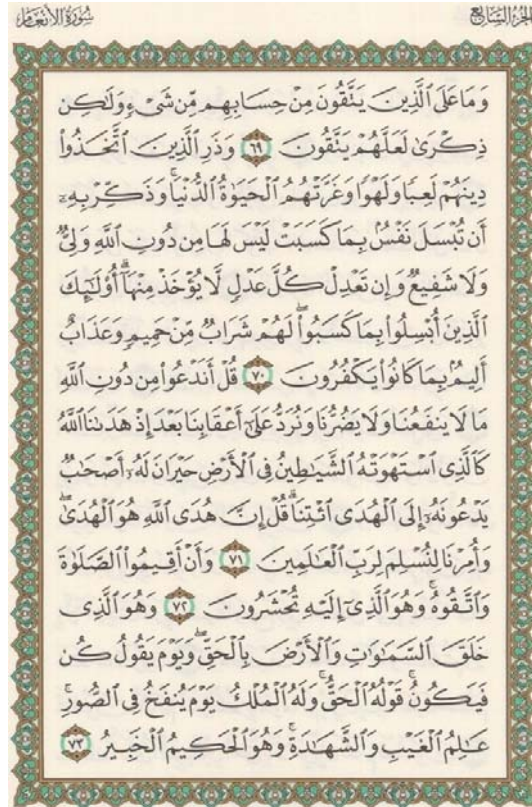 سُورَةُ الأَنْعَامِ
الجُزْءُ السَّابِعُ
وَمَا عَلَى ٱلَّذِينَ يَتَّقُونَ مِنْ حِسَابِهِم مِّن شَىْءٍ وَلَٰكِن
ذِكْرَىٰ لَعَلَّهُمْ يَتَّقُونَ ٦٩ وَذَرِ ٱلَّذِينَ ٱتَّخَذُوا۟
دِينَهُمْ لَعِبًا وَلَهْوًا وَغَرَّتْهُمُ ٱلْحَيَوٰةُ ٱلدُّنْيَا ۚ وَذَكِّرْ بِهِۦٓ
أَن تُبْسَلَ نَفْسٌۢ بِمَا كَسَبَتْ لَيْسَ لَهَا مِن دُونِ ٱللَّهِ وَلِىٌّ
وَلَا شَفِيعٌ وَإِن تَعْدِلْ كُلَّ عَدْلٍ لَّا يُؤْخَذْ مِنْهَآ ۗ أُو۟لَٰٓئِكَ
ٱلَّذِينَ أُبْسِلُوا۟ بِمَا كَسَبُوا۟ ۖ لَهُمْ شَرَابٌ مِّنْ حَمِيمٍ وَعَذَابٌ
أَلِيمٌۢ بِمَا كَانُوا۟ يَكْفُرُونَ ٧٠ قُلْ أَنَدْعُوا۟ مِن دُونِ ٱللَّهِ
مَا لَا يَنفَعُنَا وَلَا يَضُرُّنَا وَنُرَدُّ عَلَىٰٓ أَعْقَابِنَا بَعْدَ إِذْ هَدَىٰنَا ٱللَّهُ
كَٱلَّذِى ٱسْتَهْوَتْهُ ٱلشَّيَٰطِينُ فِى ٱلْأَرْضِ حَيْرَانَ لَهُۥٓ أَصْحَٰبٌ
يَدْعُونَهُۥٓ إِلَى ٱلْهُدَى ٱئْتِنَا ۗ قُلْ إِنَّ هُدَى ٱللَّهِ هُوَ ٱلْهُدَىٰ ۖ
وَأُمِرْنَا لِنُسْلِمَ لِرَبِّ ٱلْعَٰلَمِينَ ٧١ وَأَنْ أَقِيمُوا۟ ٱلصَّلَوٰةَ
وَٱتَّقُوهُ ۚ وَهُوَ ٱلَّذِىٓ إِلَيْهِ تُحْشَرُونَ ٧٢ وَهُوَ ٱلَّذِى
خَلَقَ ٱلسَّمَٰوَٰتِ وَٱلْأَرْضَ بِٱلْحَقِّ ۖ وَيَوْمَ يَقُولُ كُن
فَيَكُونُ ۚ قَوْلُهُ ٱلْحَقُّ ۚ وَلَهُ ٱلْمُلْكُ يَوْمَ يُنفَخُ فِى ٱلصُّورِ ۚ
عَٰلِمُ ٱلْغَيْبِ وَٱلشَّهَٰدَةِ ۚ وَهُوَ ٱلْحَكِيمُ ٱلْخَبِيرُ ٧٣